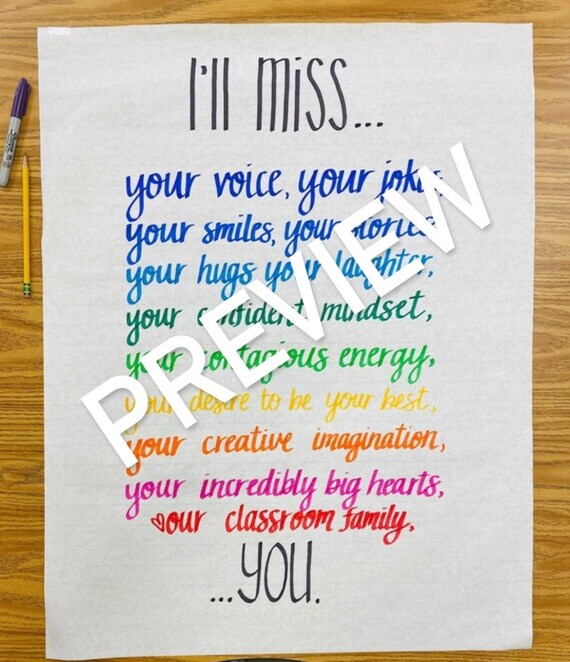 I'll Miss...
your voice, your jokes,
your smiles, your stories,
your hugs your laughter,
your confident mindset,
your contagious energy,
your desire to be your best,
your creative imagination,
your incredibly big hearts,
our classroom family,
...YOU.
PREVIEW